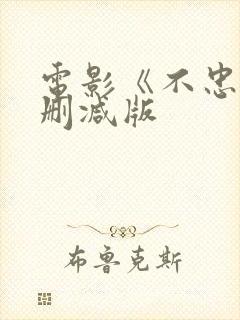 電影《不忠
刪減版
布魯克斯